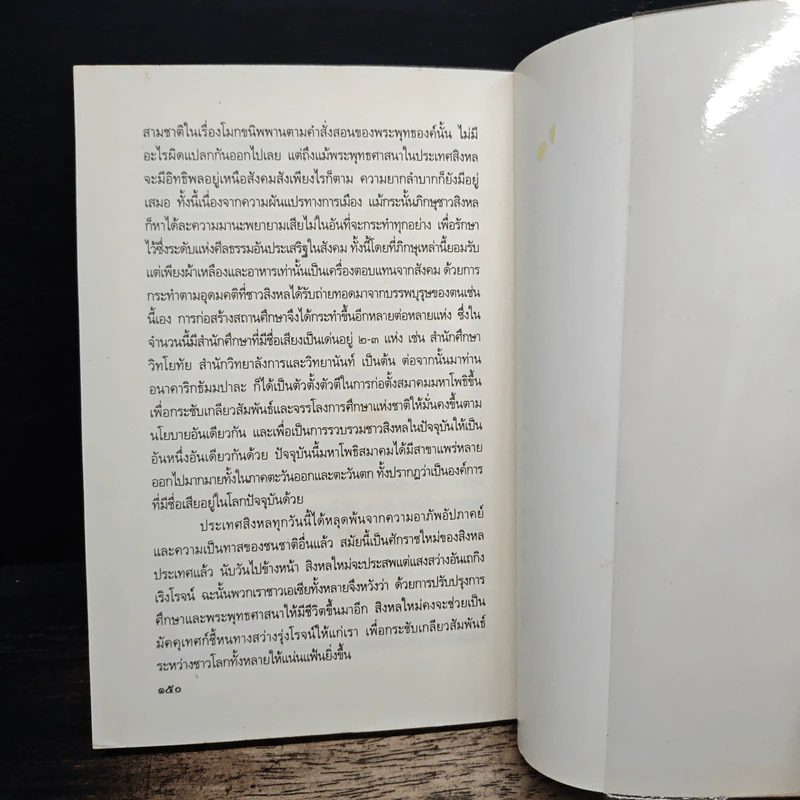 สามชาติในเรื่องโมกขนิพพานตามคำสั่งสอนของพระพุทธองค์นั้น ไม่มี
อะไรผิดแปลกกันออกไปเลย แต่ถึงแม้พระพุทธศาสนาในประเทศสิงหล
จะมีอิทธิพลอยู่เหนือสังคมสังเพียงไรก็ตาม ความยากลำบากก็ยังมีอยู่
เสมอ ทั้งนี้เนื่องจากความผันแปรทางการเมือง แม้กระนั้นภิกษุชาวสิงหล
ก็หาได้ละความมานะพยายามเสียไม่ในอันที่จะกระทำทุกอย่าง เพื่อรักษา
ไว้ซึ่งระดับแห่งศีลธรรมอันประเสริฐในสังคม ทั้งนี้โดยที่ภิกษุเหล่านี้ยอมรับ
แต่เพียงผ้าเหลืองและอาหารเท่านั้นเป็นเครื่องตอบแทนจากสังคม ด้วยการ
กระทำตามอุดมคติที่ชาวสิงหลได้รับถ่ายทอดมาจากบรรพบุรุษของตนเช่น
นี้เอง การก่อสร้างสถานศึกษาจึงได้กระทำขึ้นอีกหลายต่อหลายแห่ง ซึ่งใน
จำนวนนี้มีสำนักศึกษาที่มีชื่อเสียงเป็นเด่นอยู่ ๒-๓ แห่ง เช่น สำนักศึกษา
วิทโยทัย สำนักวิทยาลังการและวิทยานันท์ เป็นต้น ต่อจากนั้นมาท่าน
อนาคาริกธัมมปาละ ก็ได้เป็นตัวตั้งตัวตีในการก่อตั้งสมาคมมหาโพธิขึ้น
เพื่อกระชับเกลียวสัมพันธ์และจรรโลงการศึกษาแห่งชาติให้มั่นคงขึ้นตาม
นโยบายอันเดียวกัน และเพื่อเป็นการรวบรวมชาวสิงหลในปัจจุบันให้เป็น
อันหนึ่งอันเดียวกันด้วย ปัจจุบันนี้มหาโพธิสมาคมได้มีสาขาแพร่หลาย
ออกไปมากมายทั้งในภาคตะวันออกและตะวันตก ทั้งปรากฏว่าเป็นองค์การ
ที่มีชื่อเสียอยู่ในโลกปัจจุบันด้วย
ประเทศสิงหลทุกวันนี้ได้หลุดพ้นจากความอาภัพอัปภาคย์
และความเป็นทาสของชนชาติอื่นแล้ว สมัยนี้เป็นศักราชใหม่ของสิงหล
ประเทศแล้ว นับวันไปข้างหน้า สิงหลใหม่จะประสพแต่แสงสว่างอันเถกิง
เริงโรจน์ ฉะนั้นพวกเราชาวเอเชียทั้งหลายจึงหวังว่า ด้วยการปรับปรุงการ
ศึกษาและพระพุทธศาสนาให้มีชีวิตขึ้นมาอีก สิงหลใหม่คงจะช่วยเป็น
มัคคุเทศก์ชี้หนทางสว่างรุ่งโรจน์ให้แก่เรา เพื่อกระชับเกลียวสัมพันธ์
ระหว่างชาวโลกทั้งหลายให้แน่นแฟ้นยิ่งขึ้น
๑๕๐